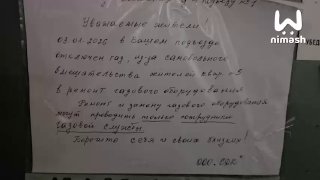 nimash
Уважаемые жители!
03.01.2026 в Вашем подъезде
отключен газ, из-за самовольного
вмешательства жителей квар. №5
в ремонт газового оборудования
Ремонт и замену газового оборудования
могут проводить только сотрудники
газовой службы.
Берегите себя и своих близких!